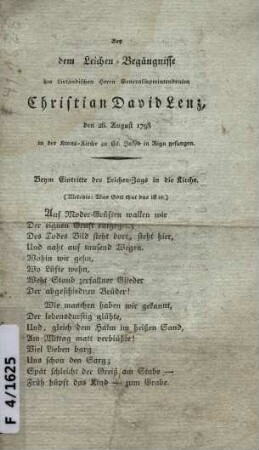 Bey
dem Leichen-Begängnisse
des Livländischen Herrn Generalsuperintendenten
Christian David Lenz,
den 26. August 1798
in der Krons-Kirche zu St. Jakob in Riga gesungen.
Beym Eintritte des Leichen-Zugs in die Kirche.
(Melodie: Was Gott thut das ist etc.)
Auf Moder-Grüften wallen wir
Der eignen Gruft entgegen;
Des Todes Bild steht dort, steht hier,
Und naht auf tausend Wegen.
Wohin wir gehn,
Wo Lüfte wehn,
Weht Staub zerfallner Glieder
Der abgeschiednen Brüder!
Wie manchen haben wir gekannt,
Der lebensdurstig glühte,
Und, gleich dem Halm im heißen Sand,
Am Mittag matt verblühte!
Viel Lieben barg
Uns schon der Sarg;
Spät schleicht der Greiß am Stabe —
Früh hüpft das Kind — zum Grabe.
F 4/1625